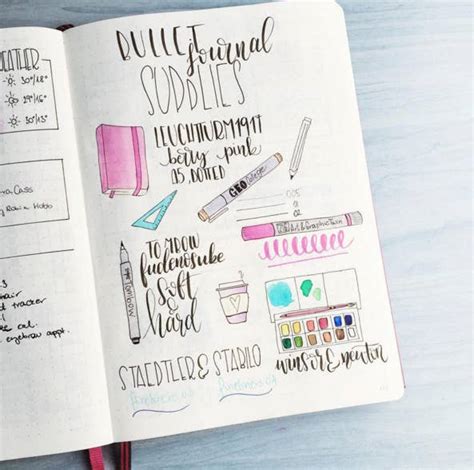 EATHER
30°/18°
29°/16°
30°/15°
ra Cass
Robin Hobb
hair
d tracker
e cal.
eyebrow appt.
BULLET
journal
SUPPLIES
LEUCHTTURM1917
berry pink
A5, DOTTED
GEO
005
01
02
Art & Graphic Twin
TOMBOW
fudenosuke
soft
&
hard
Tombow
STAEDTLER & STABILO
fineliners
fineliners
winsor & newton